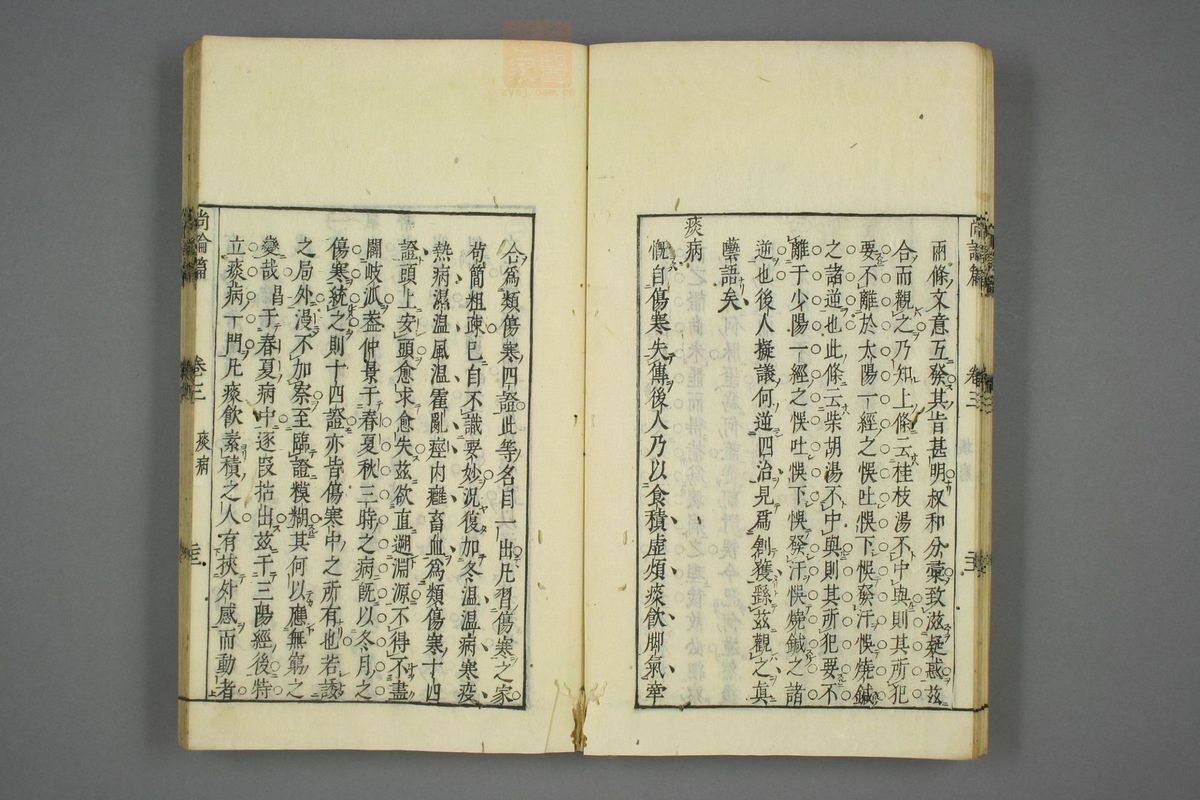 兩條文意互發其旨甚明叔和分彙致滋疑惑茲
合而觀之乃知上條云桂枝湯不中與則其所犯
要不離於太陽一經之悞吐悞下悞發汗悞燒鍼
之諸逆也此條云柴胡湯不中與則其所犯要不
離于少陽一經之悞吐悞下悞發汗悞燒鍼之諸
逆也後人擬議何逆四治見爲創獲繇茲觀之眞
囈語矣
痰病
慨自傷寒失傳後人乃以食積虛煩痰飮脚氣牽
合爲類傷寒四證此等名目一出凡習傷寒之家
苟簡粗疎已自不識要妙況復加冬溫溫病寒疫
熱病濕溫風溫霍亂痙內癰畜血爲類傷寒十四
證頭上安頭愈求愈失茲欲直遡淵源不得不盡
闢岐派葢仲景于春夏秋三時之病旣以冬月之
傷寒統之則十四證亦皆傷寒中之所有也若諉
之局外漫不加察至臨證模糊其何以應無窮之
變哉昌于春夏病中逐段拈出茲于三陽經後特
立痰病一門凡痰飮素積之人有挾外感而動者
尚論篇 卷三 痰病
尚論篇 卷三
zysj.com.cn